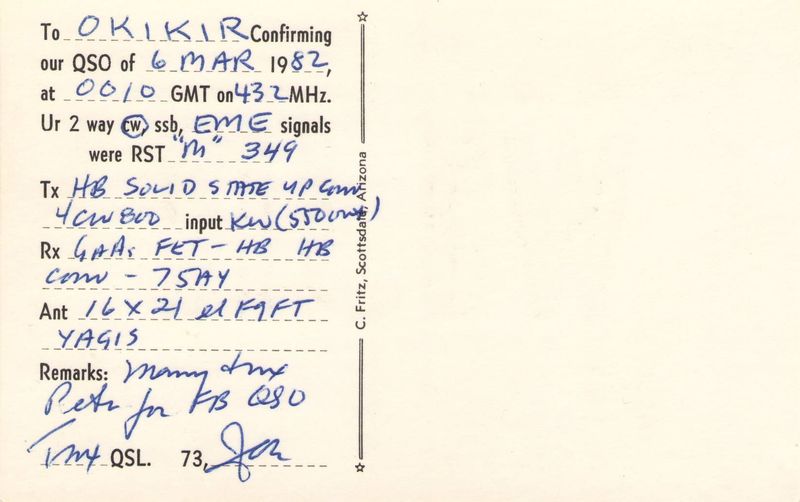 To OK1KIR Confirming
our QSO of 6 MAR 1982,
at 0010 GMT on 432 MHz.
Ur 2 way cw, ssb, EME signals
were RST "M" 349
Tx HB SOLID STATE UP CONV
4CW800 input KW (550 out)
Rx GaAs FET - HB HB
CONV - 75A4
Ant 16 X 21 el F9FT
YAGIS
Remarks: Many tnx
Petr for FB QSO
Tnx QSL. 73,
C. Fritz, Scottsdale, Arizona